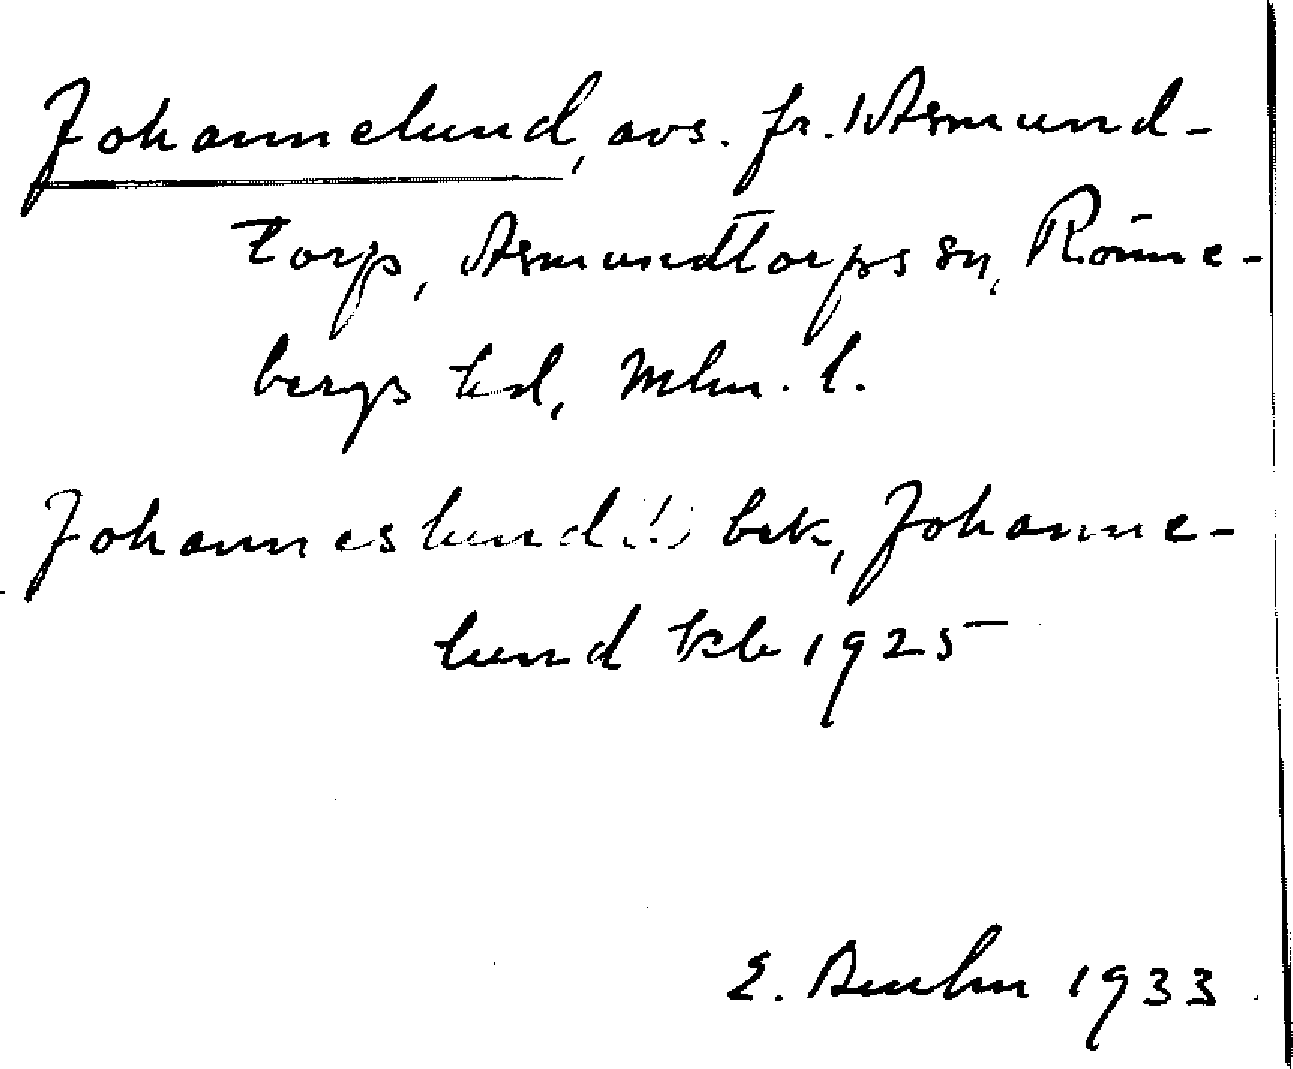 Johannelund, avs. fr. 1 Asmund-
torp, Asmundtorps sn, Rönne-
bergs hd, Mlm. l.
Johanneslund (!) bek, Johanne-
lund kb 1925
E. 1933